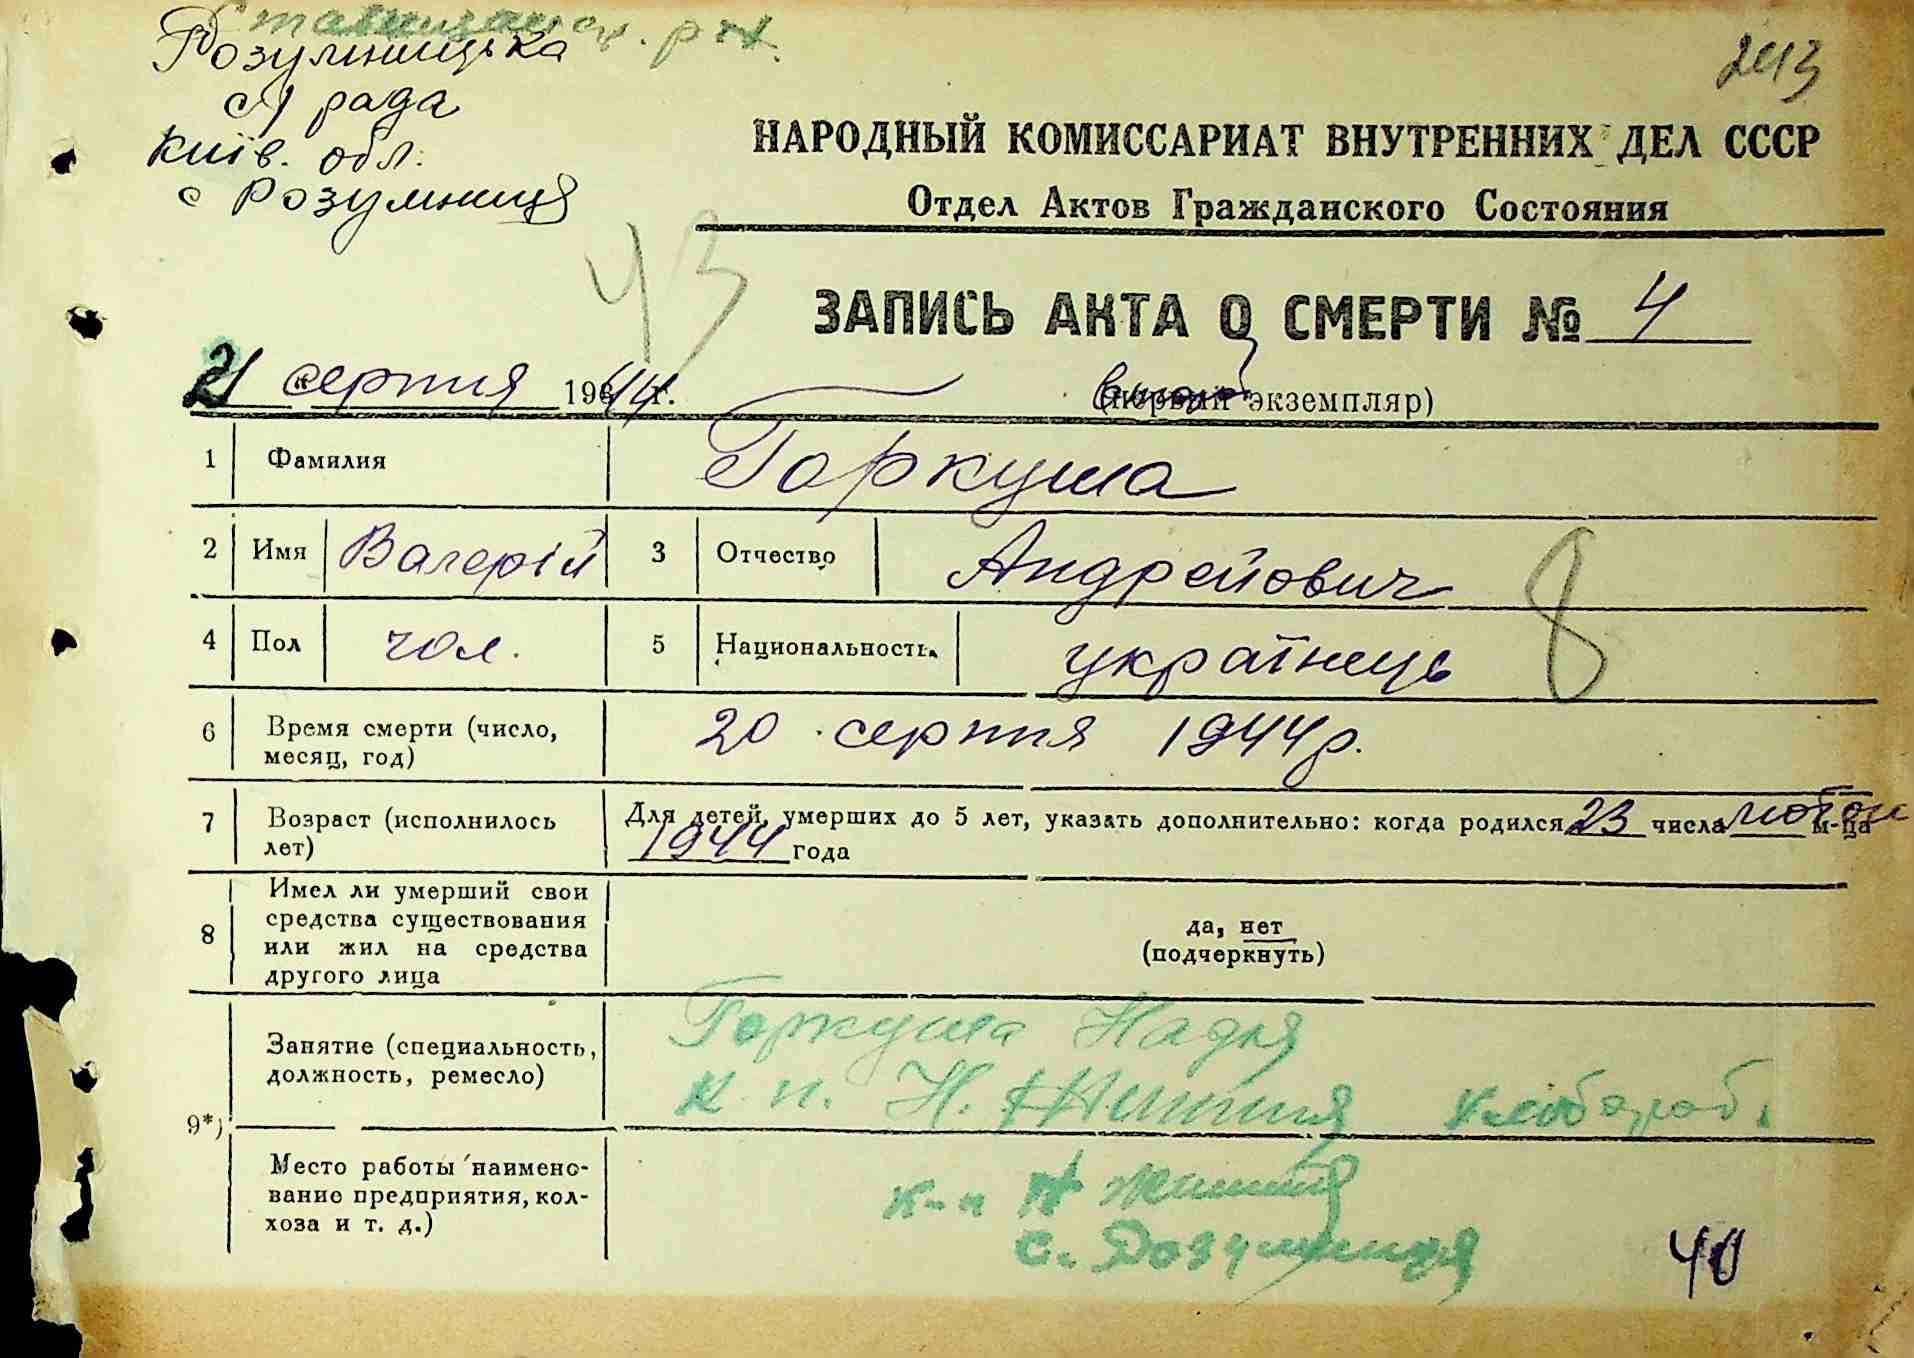 Ставищан. р-н.
Розумницька
с/рада
Київ. обл.
с Розумниця
243
НАРОДНЫЙ КОМИССАРИАТ ВНУТРЕННИХ ДЕЛ СССР
Отдел Актов Гражданского Состояния
43
ЗАПИСЬ АКТА О СМЕРТИ № 4
21 серпня 1944 г.
(первый экземпляр)
1 Фамилия Горкуша
2 Имя Валерій 3 Отчество Андрейович
8
4 Пол чол. 5 Национальность українець
6 Время смерти (число, месяц, год) 20 серпня 1944 р.
7 Возраст (исполнилось лет) Для детей, умерших до 5 лет, указать дополнительно: когда родился 23 числа м-ца
1944 года
8 Имел ли умерший свои средства существования или жил на средства другого лица
да, нет
(подчеркнуть)
9*)
Занятие (специальность, должность, ремесло)
Горкуша Надя
к. п. Н. Життя хлібороб.
Место работы (наименование предприятия, колхоза и т. д.)
к-п Н Життя
с. Розумниця
40